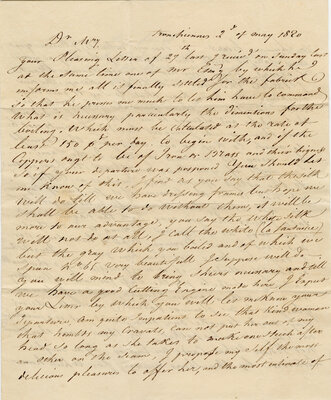 Dr Mry
2d of may 1820
your Pleasing Letter of 27th last I receiv'd on Sunday last
at the same time one of Mr by which he
informs me all is finally settled for the fabrick
so that he presses me much to let him have to command
what is necessary particularly the dimentions for the
boiling. Which must be calculated at the rate at
least 150 p per day to begin with, and if the
of to be of Iron or Brass and their bigness
so if your departure was posponed you should let
me know of this. I and as you say that the silk
will do till we have dressing frames but hope we
shall be able to do without them, it will be
more to our advantage, you say the white silk
will not do as all, I call this white (a fantaisie)
but the gray which you boiled and of which we
spun very beautiful I suppose will do
by me will want to bring shears necessary and tell
we have a good Cutting Engine made here I expect
your Lines by which you will let me know your
departure am quite impatient to see that kind woman
that troubles my Cravats, can not put her out of my
head so long as she takes to make one stitch after
an other on the seam, I propose my self the most
delicious pleasures to offer her and the most intimate of